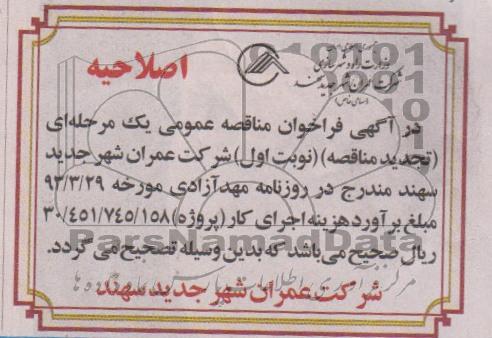 وزارت راه و شهرسازی
شرکت عمران شهر جدید سهند
(سهامی خاص)
اصلاحیه
در آگهی فراخوان مناقصه عمومی یک مرحله‌ای
(تجدید مناقصه) (نوبت اول) شرکت عمران شهر جدید
سهند مندرج در روزنامه مهدآزادی مورخه ۹۳/۳/۲۹
مبلغ برآورد هزینه اجرای کار (پروژه) ۳۰/۴۵۱/۷۴۵/۱۵۸
ریال صحیح می‌باشد که بدین وسیله تصحیح می گردد.
ParsNamadData
شرکت عمران شهر جدید سهند